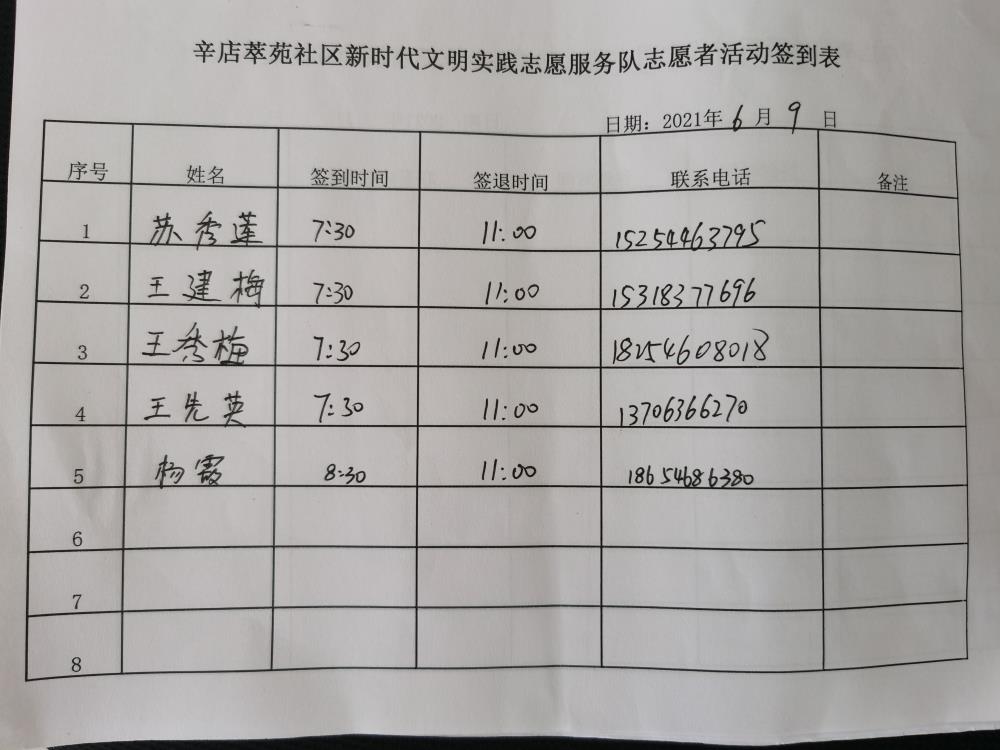 辛店萃苑社区新时代文明实践志愿服务队志愿者活动签到表
日期：2021年 6 月 9 日
序号 姓名 签到时间 签退时间 联系电话 备注
1 苏秀莲 7:30 11:00 15254463795
2 王建梅 7:30 11:00 15318377696
3 王秀梅 7:30 11:00 18254608018
4 王先英 7:30 11:00 13706366270
5 杨霞 8:30 11:00 18654686380
6
7
8